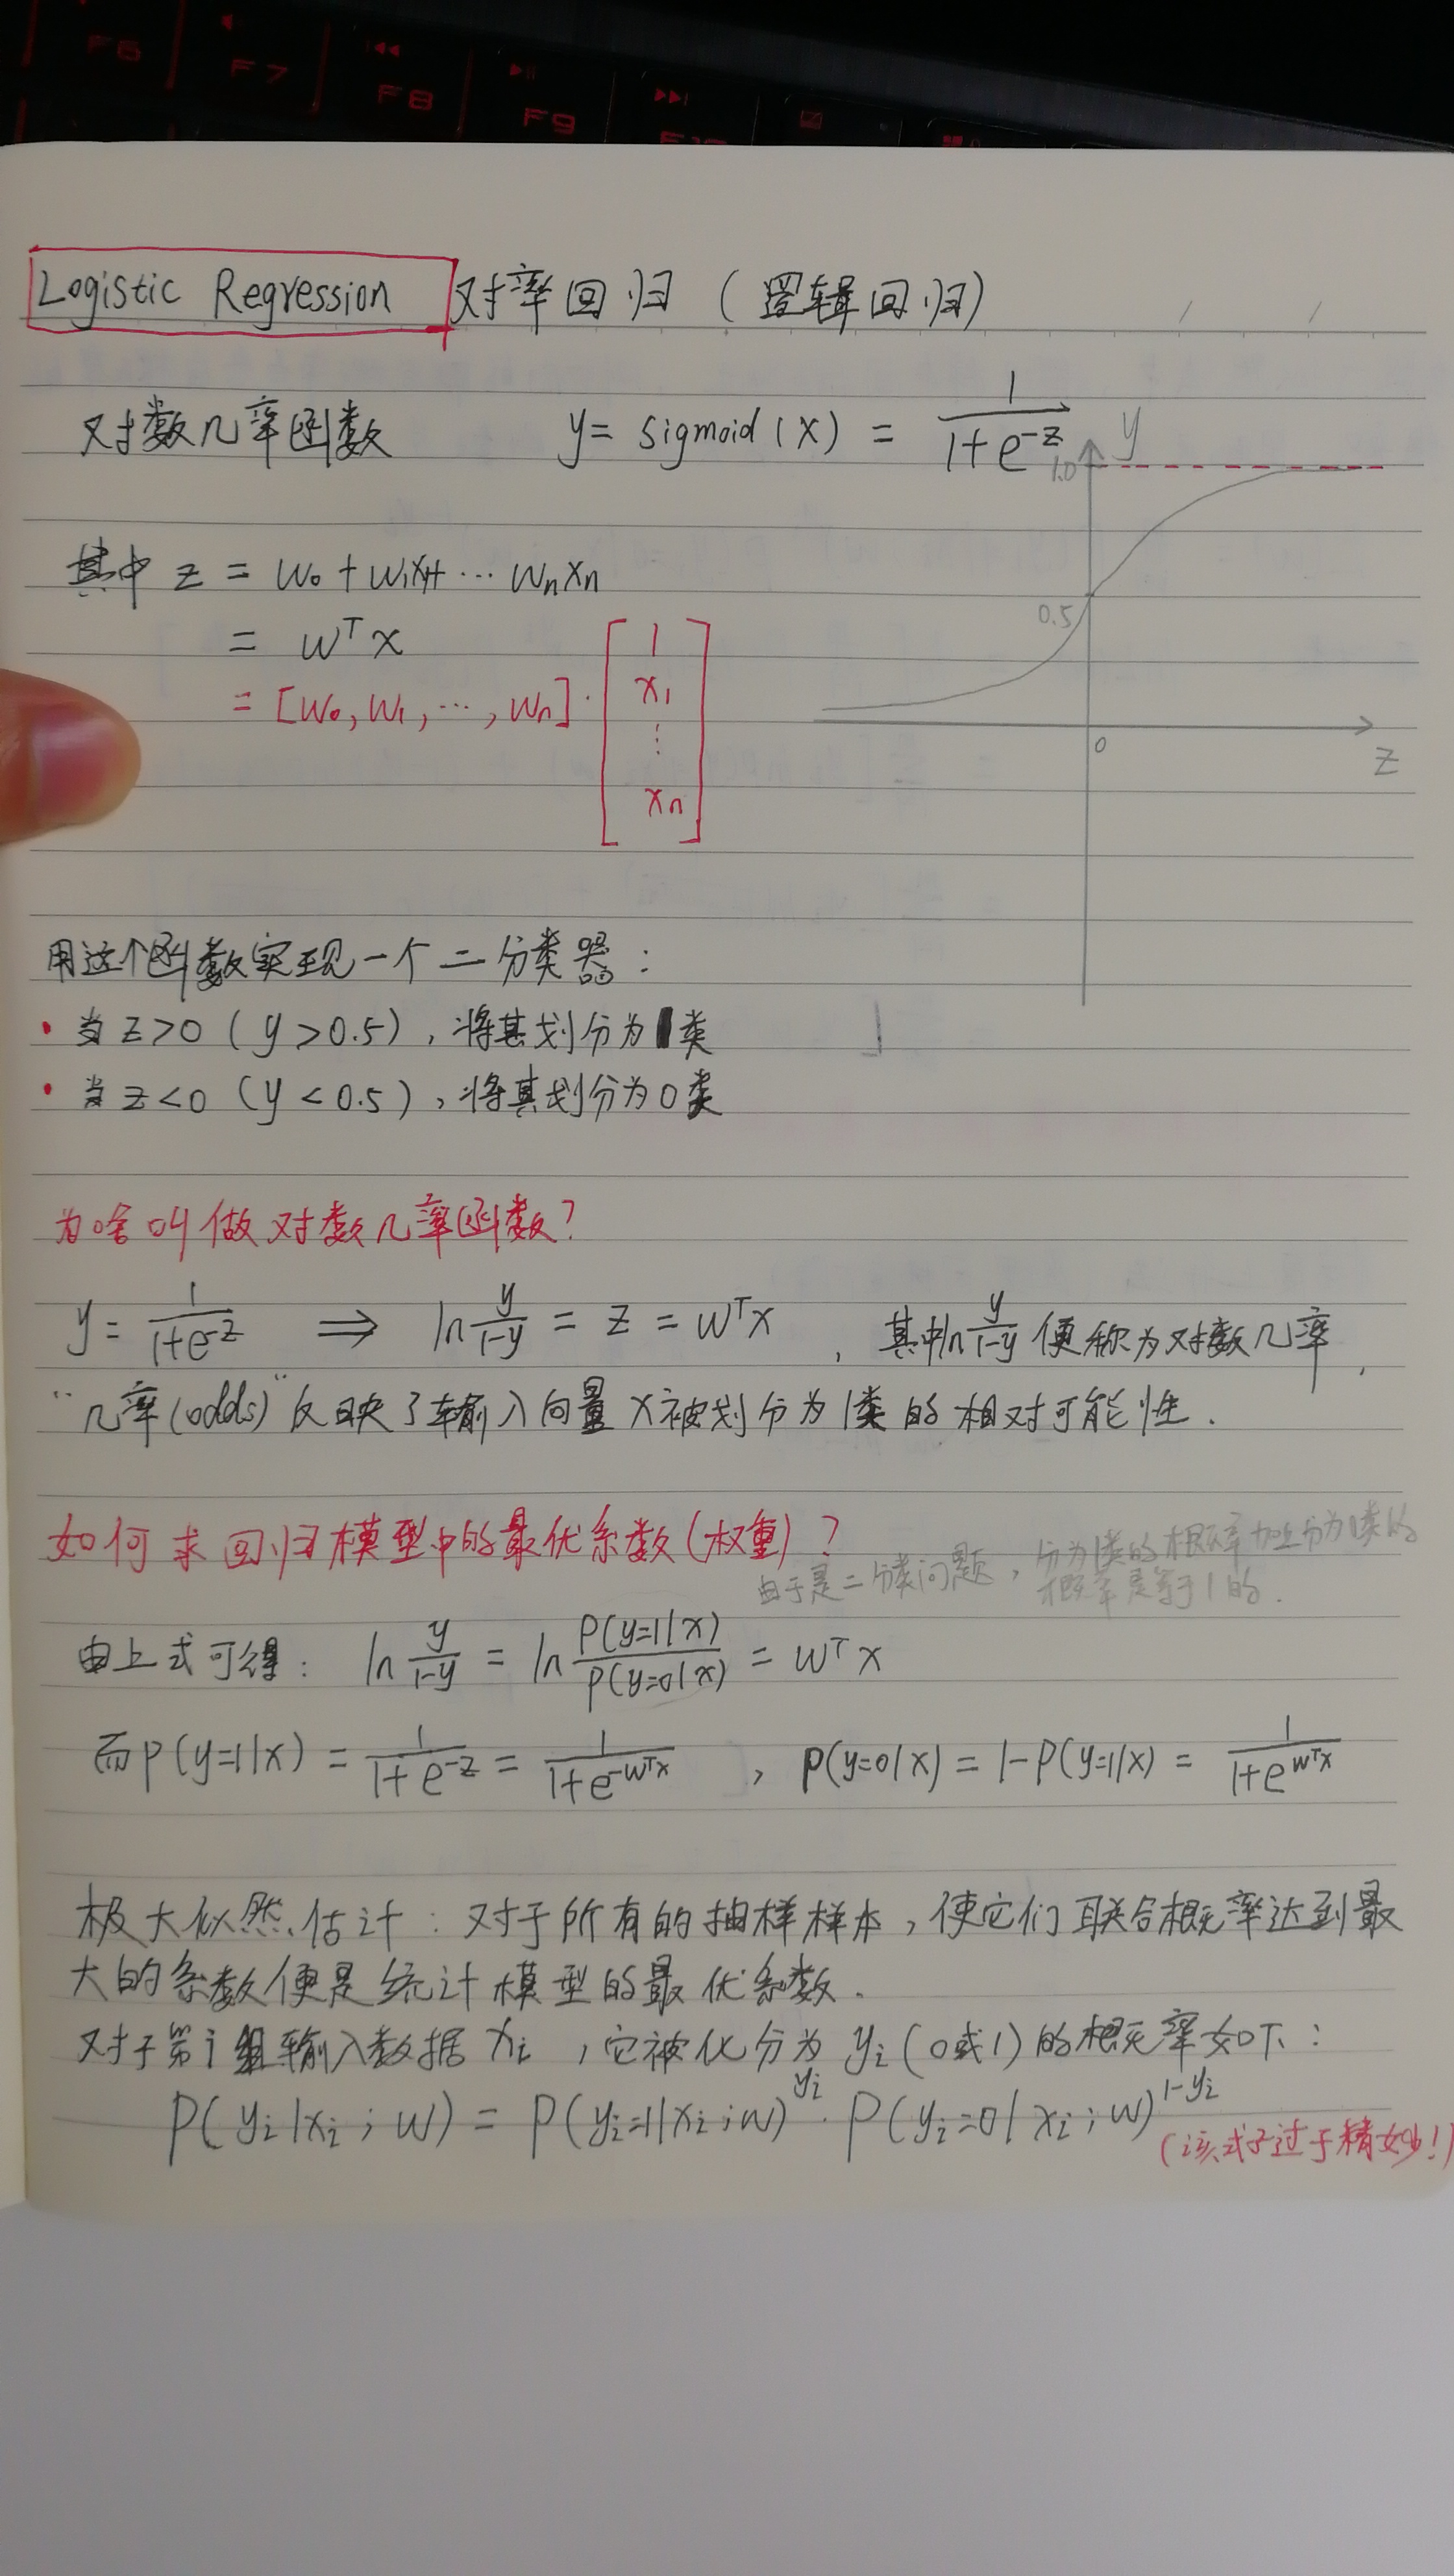 F6 F7 F8 F9 F10
Logistic Regression 对率回归 (逻辑回归)
对数几率函数 y = sigmoid(x) = \frac{1}{1+e^{-z}}
y
1.0
0.5
0
z
其中 z = w₀ + w₁x₁+ ⋯ wₙxₙ
= wᵀx
= [w₀, w₁, ⋯, wₙ] · [1 x₁ ⋮ xₙ]
用这个函数实现一个二分类器:
· 当 z>0 (y>0.5), 将其划分为1类
· 当 z<0 (y<0.5), 将其划分为0类
为啥叫做对数几率函数?
y = \frac{1}{1+e^{-z}} ⇒ ln\frac{y}{1-y} = z = wᵀx , 其中ln\frac{y}{1-y}便称为对数几率,
"几率(odds)"反映了输入向量x被划分为1类的相对可能性.
如何求回归模型中的最优系数(权重)?
由于是二分类问题, 分为1类的概率加上分为1类的
概率是等于1的.
由上式可得: ln\frac{y}{1-y} = ln\frac{P(y=1|x)}{P(y=0|x)} = wᵀx
而P(y=1|x) = \frac{1}{1+e^{-z}} = \frac{1}{1+e^{-wᵀx}} , P(y=0|x) = 1-P(y=1|x) = \frac{1}{1+e^{wᵀx}}
极大似然估计: 对于所有的抽样样本, 使它们联合概率达到最
大的系数便是统计模型的最优系数.
对于第i组输入数据xᵢ, 它被化分为yᵢ(0或1)的概率如下:
P(yᵢ|xᵢ; w) = P(yᵢ=1|xᵢ; w)^{yᵢ} · P(yᵢ=0|xᵢ; w)^{1-yᵢ}
(该式子过于精妙!)